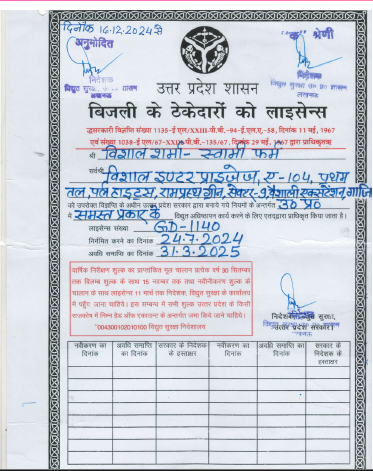 दिनांक 16.12.2024 से
"क" श्रेणी
अनुमोदित
निदेशक
विद्युत सुरक्षा शासन
लखनऊ
निदेशक
विद्युत सुरक्षा उ० प्र० शासन
लखनऊ
उत्तर प्रदेश शासन
बिजली के ठेकेदारों को लाइसेन्स
सरकारी विज्ञप्ति संख्या 1135-ई एल/XXIII-पी.बी.-94-ई.एल.ए.-58, दिनांक 11 मई, 1967
एवं संख्या 1038-ई एल/67-XXIII-पी.बी.-135/67, दिनांक 29 मई, 1967 द्वारा प्राधिकृत
श्री विशाल शर्मा- स्वामी फर्म
सर्वश्री विशाल इण्टर प्राइजेज, ए-104, प्रथम
तल, पर्ल हाइट्स, रामप्रस्थ ग्रीन, सेक्टर-9, वैशाली एक्सटेंशन, गाजि
को उपरोक्त विज्ञप्ति के अधीन उत्तर प्रदेश सरकार द्वारा बनाये गये नियमों के अन्तर्गत उ० प्र०
में समस्त प्रकार के विद्युत अधिष्ठापन कार्य करने के लिए एतद्द्वारा प्राधिकृत किया जाता है।
लाइसेन्स संख्या GD-1140
निर्गमित करने का दिनांक 24.7.2024
अवधि समाप्ति का दिनांक 31.3.2025
वार्षिक निरीक्षण शुल्क का प्रमाणित मूल चालान प्रत्येक वर्ष 30 सितम्बर
तक विलम्ब शुल्क के साथ 15 नवम्बर तक तथा नवीनीकरण शुल्क के
चालान के साथ लाइसेन्स 11 मार्च तक निदेशक, विद्युत सुरक्षा के कार्यालय
में पहुँच जाना चाहिये। इस सम्बन्ध में सभी शुल्क उत्तर प्रदेश के किसी
राजकोष में निम्न हेड ऑफ एकाउन्ट के अन्तर्गत जमा किये जाने चाहिये।
"004300102010100 विद्युत सुरक्षा निदेशालय
निदेशक विद्युत सुरक्षा,
उत्तर प्रदेश सरकार।
नवीकरण का दिनांक
अवधि समाप्ति का दिनांक
सरकार के निदेशक के हस्ताक्षर
नवीकरण का दिनांक
अवधि समाप्ति का दिनांक
सरकार के निदेशक के हस्ताक्षर